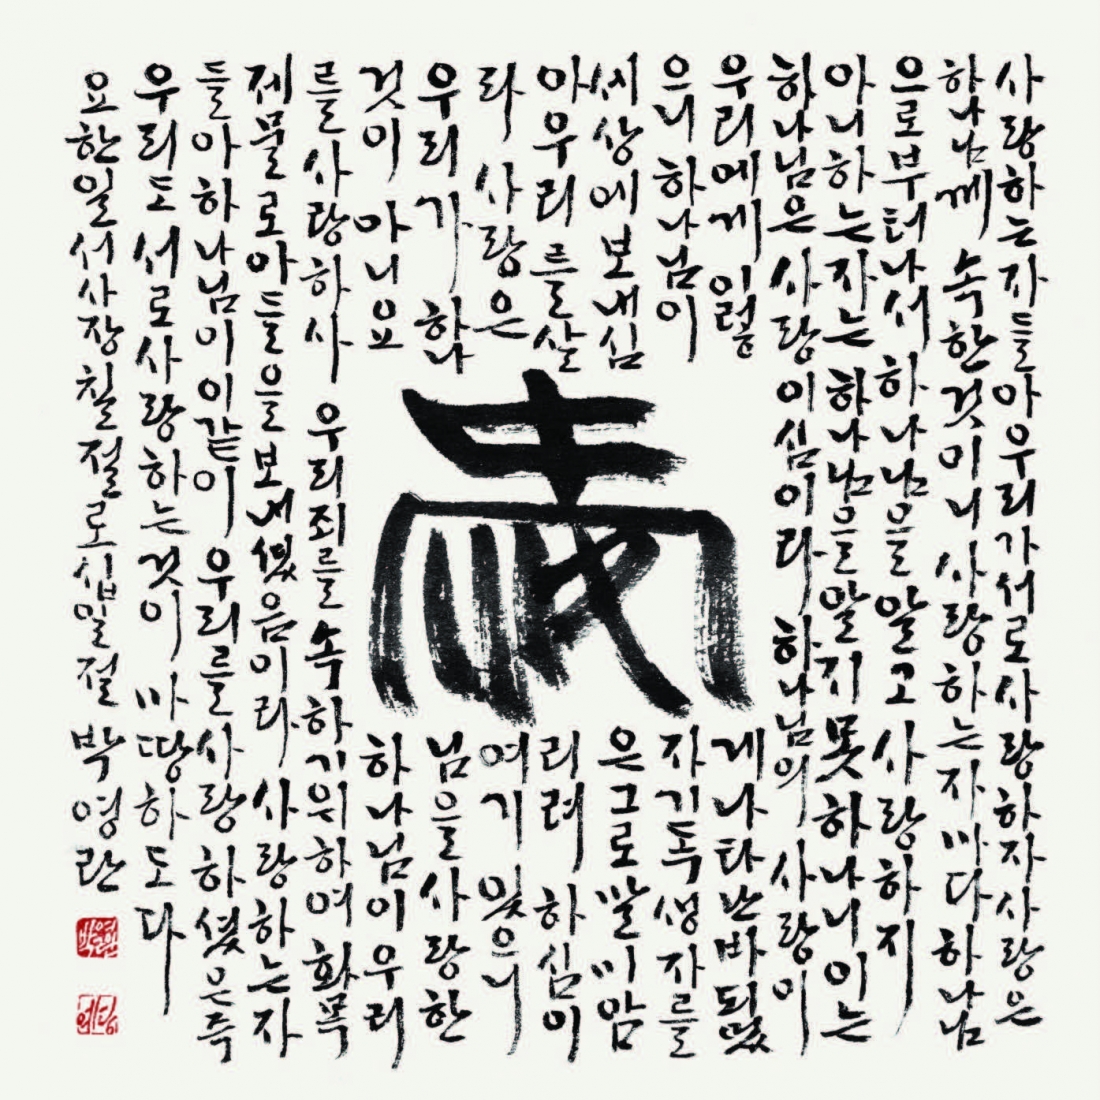 사랑하는자들아우리가서로사랑하자사랑은
하나님께 속한것이니 사랑하는자마다하나님
으로부터나서 하나님을알고 사랑하지
아니하는자는하나님을알지못하나니이는
하나님은사랑이심이라 하나님의 사랑이
우리에게 이렇게나타난바되었
으니하나님이 자기독생자를
세상에보내심은그로말미암
아우리를살리려 하심이
라 사랑은 여기 있으니
우리가 하나님을사랑한
것이 아니요 하나님이우리
를사랑하사 우리죄를속하기위하여화목
제물로아들을보내셨음이라 사랑하는자
들아하나님이이같이 우리를사랑하셨은즉
우리도서로사랑하는것이 마땅하도다
요한일서사장칠절로십일절 박영란